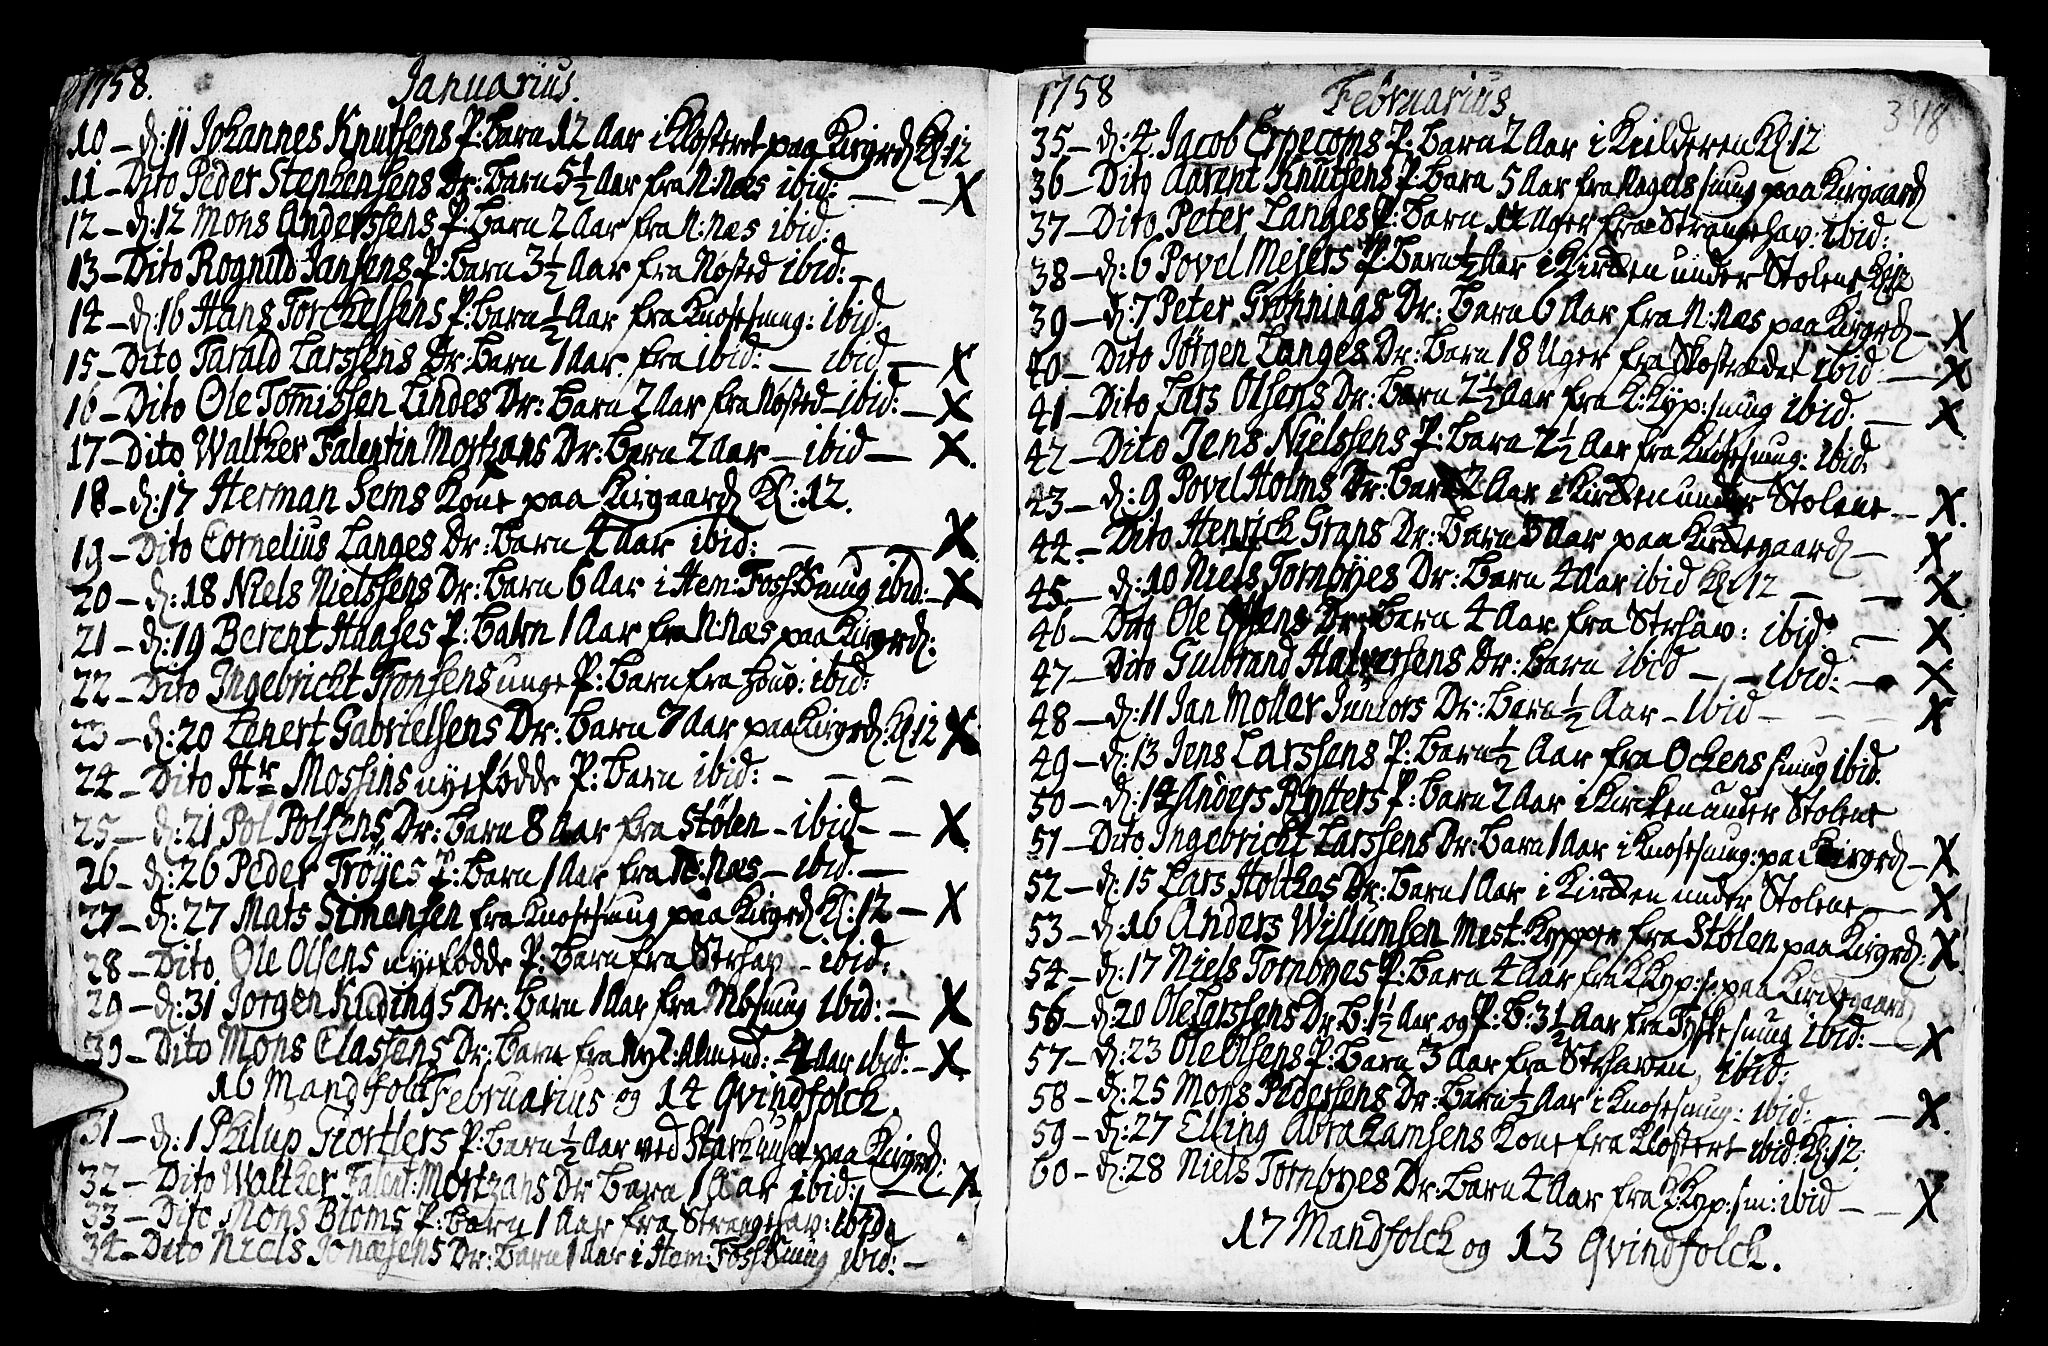 1758. Januarius.
10 – d: 11 Johannes Knutsens P: Barn 12 Aar i Klosteret paa Kirgrd Kl: 12
11 – Dito Peder Stephensens Dr: Barn 5½ Aar fra N: Næs ibid: — – X
12 – d: 12 Mons Anderssens P: Barn 2 Aar fra N: næs ibid:
13 – Dito Rognild Jansens P: Barn 3½ Aar fra Nøsted ibid: –
14 – d: 16 Hans Torckelsens P: Barn ½ Aar fra Knosesmug: ibid:
15 – Dito Tarald Larssens Dr: Barn 1 Aar fra ibid: — ibid — X
16 – Dito Ole Tomissen Lindes Dr: Barn 2 Aar fra Nøsted – ibid: – X
17 – Dito Waltzer Falentin Mortzans Dr: Barn 2 Aar – ibid — X.
18 – d: 17 Herman Sems Kone paa Kirgaard Kl: 12.
19 – Dito Cornelius Langes Dr: Barn 4 Aar ibid: — — X
20 – d: 18 Niels Nielssens Dr: Barn 6 Aar i Hem: Foss Smug ibid: – X
21 – d: 19 Berent Haases P: Barn 1 Aar fra N: Næs paa Kirgrd:
22 – Dito Ingebricht Tronsens unge P: Barn fra ibid:
23 – d: 20 Lenert Gabrielsens Dr: Barn 7 Aar paa Kirgrd: Kl 12 X
24 – Dito Hr Mossins nyefødde P: Barn ibid: – – –
25 – d: 21 Pol Polsens Dr: Barn 8 Aar fra Stølen – ibid – – X
26 – d: 26 Peder Trøyes P: Barn 1 Aar fra N: Næs – ibid. —
27 – d: 27 Mats Simensen fra Knosesmug paa Kirgrd Kl: 12 — X
28 – Dito Ole Olsens nyefødde P: Barn fra Strhav – ibid:
29 – d: 31 Jørgen Kidings Dr: Barn 1 Aar fra smug ibid: – X
30 – Dito Mons Classens Dr: Barn fra Nyl: Almend: – 4 Aar ibid: – X
16 Mandfolck og 14 Qvindfolck.
Februarius
31 – d: 1 Philup Giortlers P: Barn ½ Aar ved paa Kirgrd:
32 – Dito Waltzer Falent: Mortzans Dr Barn 1 Aar ibid: — – X
33 – Dito Mons Bloms P: Barn 1 Aar fra Strangehav: ibid
34 – Dito Niels Jonæsens Dr: Barn 1 Aar i Hem: Foss Smug ibid: –
1758 Februarius. 348
35 – d: 4 Jacob P: Barn 2 Aar i Kielderen Kl: 12
36 – Dito Aarent Knutsens P: Barn 5 Aar fra Nagels smug paa Kirgaard
37 – Dito Peter Langes P: Barn Uger fra Strangehav: ibid:
38 – d: 6 Povel Mejers P: Barn ½ Aar i Kircken under Stolene Kl 12
39 – d: 7 Peter Grønnings Dr: Barn 6 Aar fra N: Næs paa Kirgrd – X
40 – Dito Jørgen Langes Dr: Barn 18 Uger fra Skostrædet ibid: — X
41 – Dito Lars Olsens Dr: Barn 2½ Aar fra K: Kyp: smug ibid: — X
42 – Dito Jens Nielssens P: Barn 2½ Aar fra Knosesmug: ibid:
43 – d: 9 Povel Holms Dr: Barn 2 Aar i Kircken under Stolene – X.
44 – Dito Henrick Grans Dr: Barn 3 Aar paa Kirckegaard – X
45 – d: 10 Niels Tornøyes Dr: Barn 4 Aar ibid Kl 12 – – X
46 – Dito Ole Dr: Barn 4 Aar fra Strhav: ibid: — X
47 – Dito Gulbrand Halversens Dr: Barn ibid – – ibid: – X
48 – d: 11 Jan Moller Juniors Dr: Barn ½ Aar – ibid – – – X
49 – d: 13 Jens Larssens P: Barn ½ Aar fra Ockens smug ibid.
50 – d: 14 Anders Rytters P: Barn 2 Aar i Kircken under Stolene
51 – Dito Ingebricht Larssens Dr: Barn 1 Aar i Knosesmug: paa Kirgrd – X
52 – d: 15 Lars Holthes Dr: Barn 1 Aar i Kircken under Stolene — X
53 – d: 16 Anders Willumsen Mest: Kypper fra Stølen paa Kirgrd: X
54 – d: 17 Niels Tornøyes P: Barn 4 Aar fra K Kyp: s: paa Kirckegaard
56 – d: 20 Ole Larssens Dr B: 1½ Aar og P: B: 3½ Aar fra Tyskesmug ibid: – X
57 – d: 23 Ole Olsens P: Barn 3 Aar fra Strhaven ibid:
58 – d: 25 Mons Pederssens Dr: Barn ½ Aar i Knosesmug: ibid: — – X.
59 – d: 27 Elling Abrahamsens Kone fra Klostert ibid: Kl: 12:
60 – d: 28 Niels Tornøyes Dr: Barn 4 Aar fra K: Kyp: sm: ibid – – X
17 Mandfolck og 13 Qvindfolck.